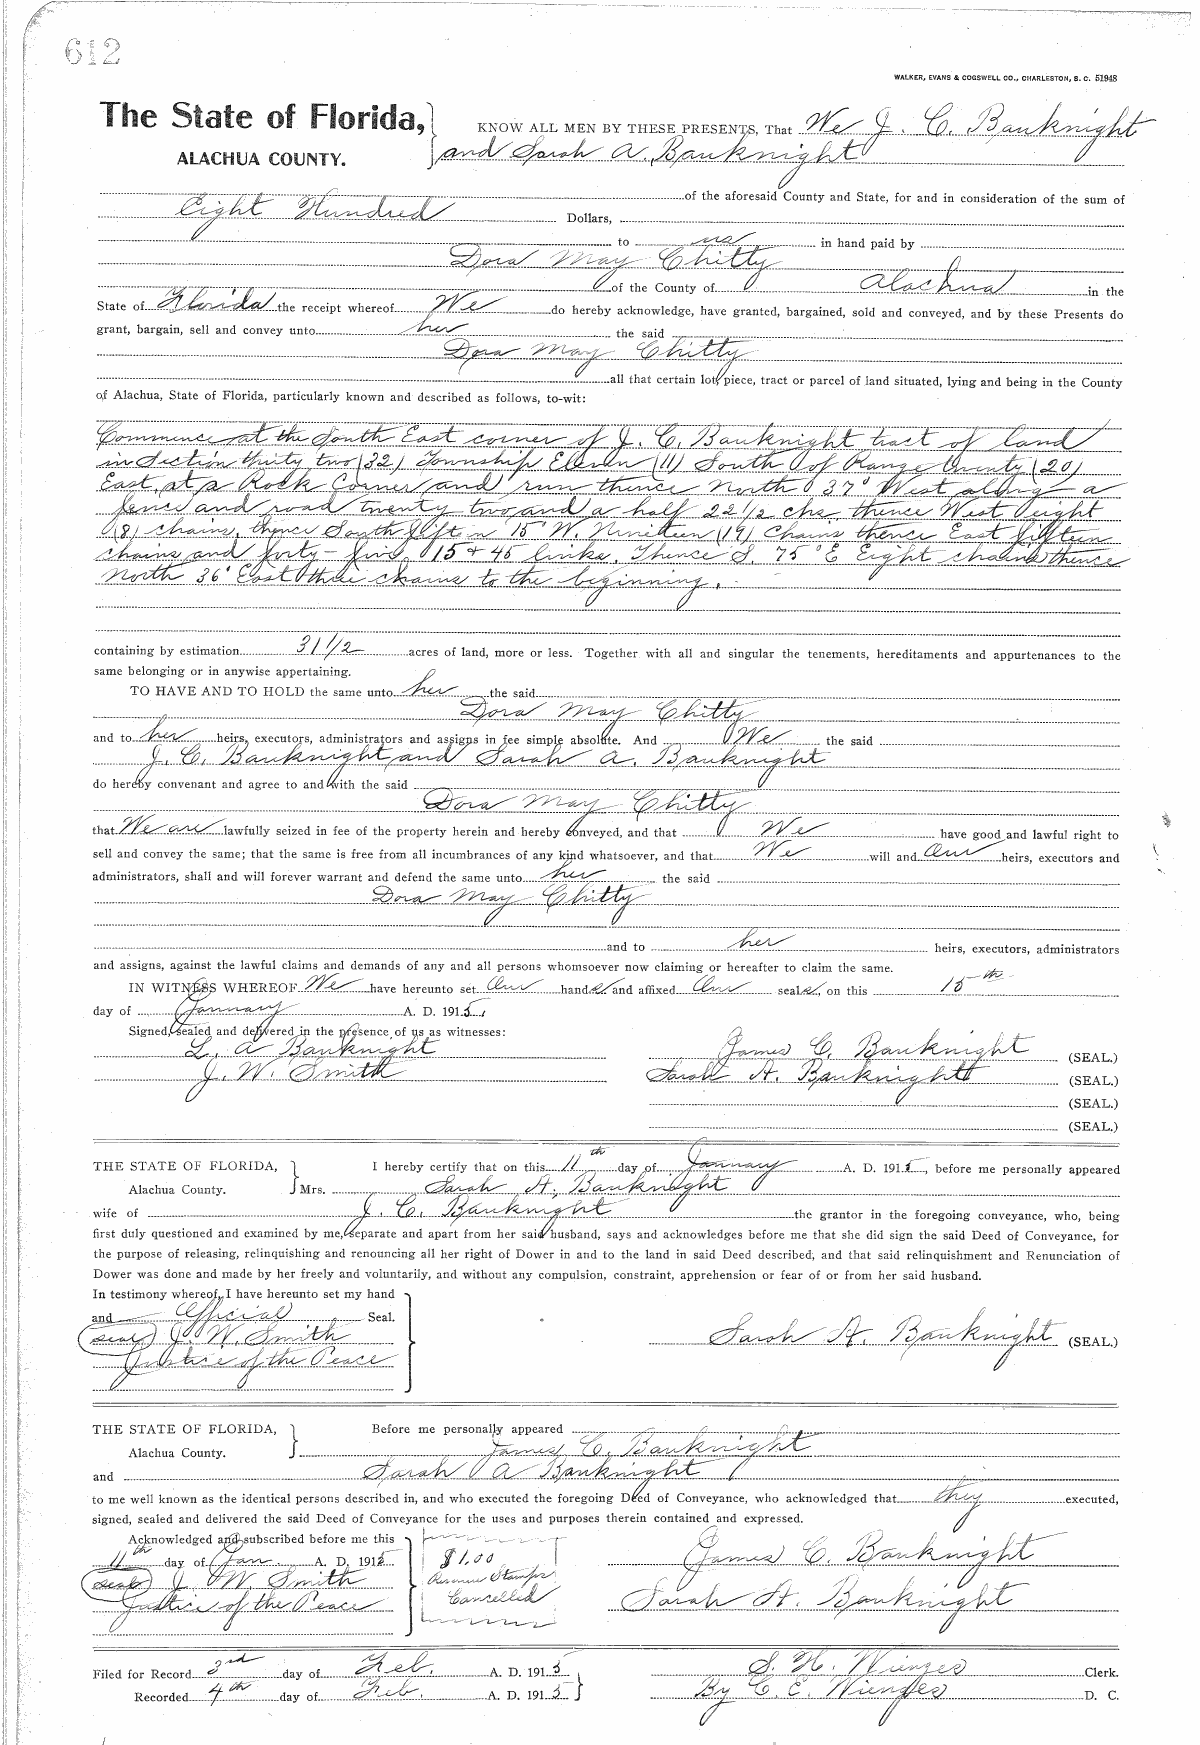 612
WALKER, EVANS & COGSWELL CO., CHARLESTON, S. C. 51948
The State of Florida, KNOW ALL MEN BY THESE PRESENTS, That We J. C. Bauknight
ALACHUA COUNTY. and Sarah A. Bauknight
of the aforesaid County and State, for and in consideration of the sum of
Eight Hundred Dollars,
to us in hand paid by
Dora May Chitty
of the County of Alachua in the
State of Florida the receipt whereof We do hereby acknowledge, have granted, bargained, sold and conveyed, and by these Presents do
grant, bargain, sell and convey unto her the said
Dora May Chitty
all that certain lot, piece, tract or parcel of land situated, lying and being in the County
of Alachua, State of Florida, particularly known and described as follows, to-wit:
Commence at the South East corner of J. C. Bauknight tract of land
in Section thirty two (32) Township Eleven (11) South of Range twenty (20)
East, at a Rock Corner and run thence North 37° West along a
fence and road twenty two and a half 22 1/2 chs, thence West eight
(8) chains, thence South fifteen 15° W. Nineteen (19) Chains thence East fifteen
chains and forty-five, 15 + 45 links, Thence S. 75° E Eight chains thence
North 36° East three chains to the beginning.
containing by estimation 31 1/2 acres of land, more or less. Together with all and singular the tenements, hereditaments and appurtenances to the
same belonging or in anywise appertaining.
TO HAVE AND TO HOLD the same unto her the said
Dora May Chitty
and to her heirs, executors, administrators and assigns in fee simple absolute. And We the said
J. C. Bauknight and Sarah A. Bauknight
do hereby convenant and agree to and with the said
Dora May Chitty
that We are lawfully seized in fee of the property herein and hereby conveyed, and that We have good and lawful right to
sell and convey the same; that the same is free from all incumbrances of any kind whatsoever, and that We will and Our heirs, executors and
administrators, shall and will forever warrant and defend the same unto her the said
Dora May Chitty
and to her heirs, executors, administrators
and assigns, against the lawful claims and demands of any and all persons whomsoever now claiming or hereafter to claim the same.
IN WITNESS WHEREOF We have hereunto set Our hands and affixed Our seals, on this 15th
day of January A. D. 1915,
Signed, sealed and delivered in the presence of us as witnesses:
L. A Bauknight James C. Bauknight (SEAL.)
J. W. Smith Sarah A. Bauknight (SEAL.)
(SEAL.)
(SEAL.)
THE STATE OF FLORIDA, I hereby certify that on this 11th day of January A. D. 1915, before me personally appeared
Alachua County. Mrs. Sarah A. Bauknight
wife of J. C. Bauknight the grantor in the foregoing conveyance, who, being
first duly questioned and examined by me, separate and apart from her said husband, says and acknowledges before me that she did sign the said Deed of Conveyance, for
the purpose of releasing, relinquishing and renouncing all her right of Dower in and to the land in said Deed described, and that said relinquishment and Renunciation of
Dower was done and made by her freely and voluntarily, and without any compulsion, constraint, apprehension or fear of or from her said husband.
In testimony whereof, I have hereunto set my hand
and Official Seal.
(seal) J. W. Smith Sarah A. Bauknight (SEAL.)
Justice of the Peace
THE STATE OF FLORIDA, Before me personally appeared
Alachua County. James C. Bauknight
and Sarah A Bauknight
to me well known as the identical persons described in, and who executed the foregoing Deed of Conveyance, who acknowledged that they executed,
signed, sealed and delivered the said Deed of Conveyance for the uses and purposes therein contained and expressed.
Acknowledged and subscribed before me this
11th day of Jan. A. D. 1915 $1.00 James C. Bauknight
(seal) J. W. Smith Revenue Stamps
Justice of the Peace Cancelled Sarah A. Bauknight
Filed for Record 3rd day of Feb. A. D. 1915 S. H. Wienges Clerk.
Recorded 4th day of Feb. A. D. 1915 By C. E. Wienges D. C.